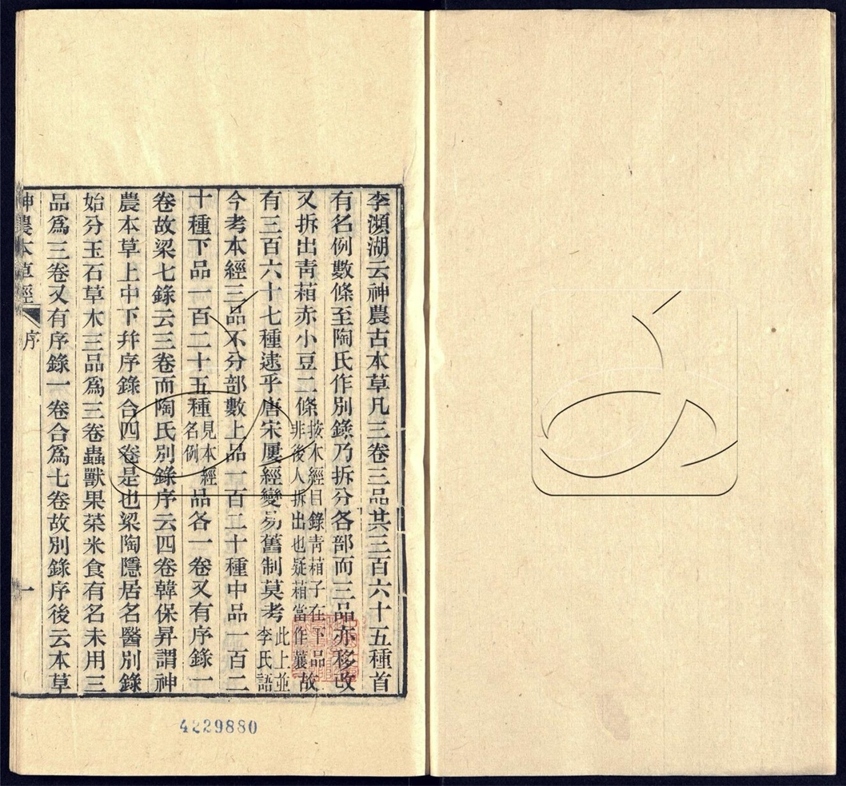 李瀕湖云神農古本草凡三卷三品共三百六十五種首
有名例數條至陶氏作別錄乃拆分各部而三品亦移改
又拆出青葙赤小豆二條按本經目錄青葙子在下品非後人拆出也疑葙當作蘘故
有三百六十七種逮乎唐宋屢經變易舊制莫考此上並李氏語
今考本經三品不分部數上品一百二十種中品一百二
十種下品一百二十五種見本經名例品各一卷又有序錄一
卷故梁七錄云三卷而陶氏別錄序云四卷韓保昇謂神
農本草上中下幷序錄合四卷是也梁陶隱居名醫別錄
始分玉石草木三品爲三卷蟲獸果菜米食有名未用三
品爲三卷又有序錄一卷合爲七卷故別錄序後云本草
神農本草經 序 一
4229880